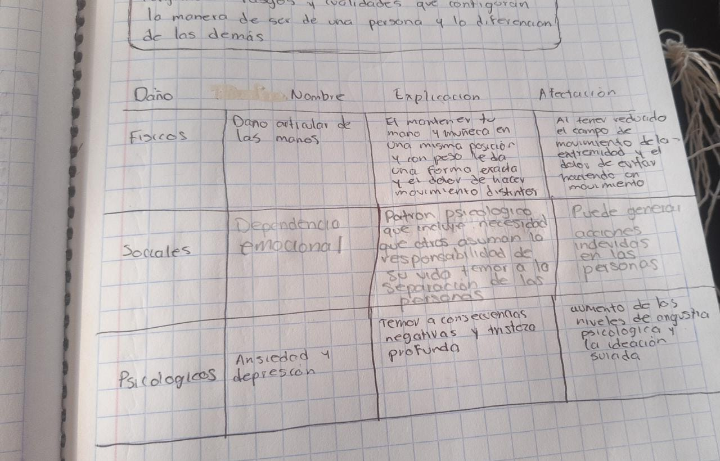 rasgos y cualidades que configuran
la manera de ser de una persona y lo diferencian
de las demás
Daño Nombre Explicacion Afectación
Fisicos
Daño articular de
las manos
El mantener tu
mano y muñeca en
una misma posición
y con peso le da
una forma errada
y el dolor de hacer
movimiento distinter
Al tener reducido
el campo de
movimiento de la
extremidad y el
dolor de evitar
haciendo un
movimiento
Sociales
Dependencia
emocional
Patron psicologico
que incluye necesidad
que otros asuman la
responsabilidad de
su vida temor a la
separacion de las
personas
Puede generar
acciones
indevidas
en las
personas
Psicologicos
Ansiedad y
depresion
Temor a consecuencias
negativas y tristeza
profunda
aumento de los
niveles de angustia
psicologica y
la ideación
suicida